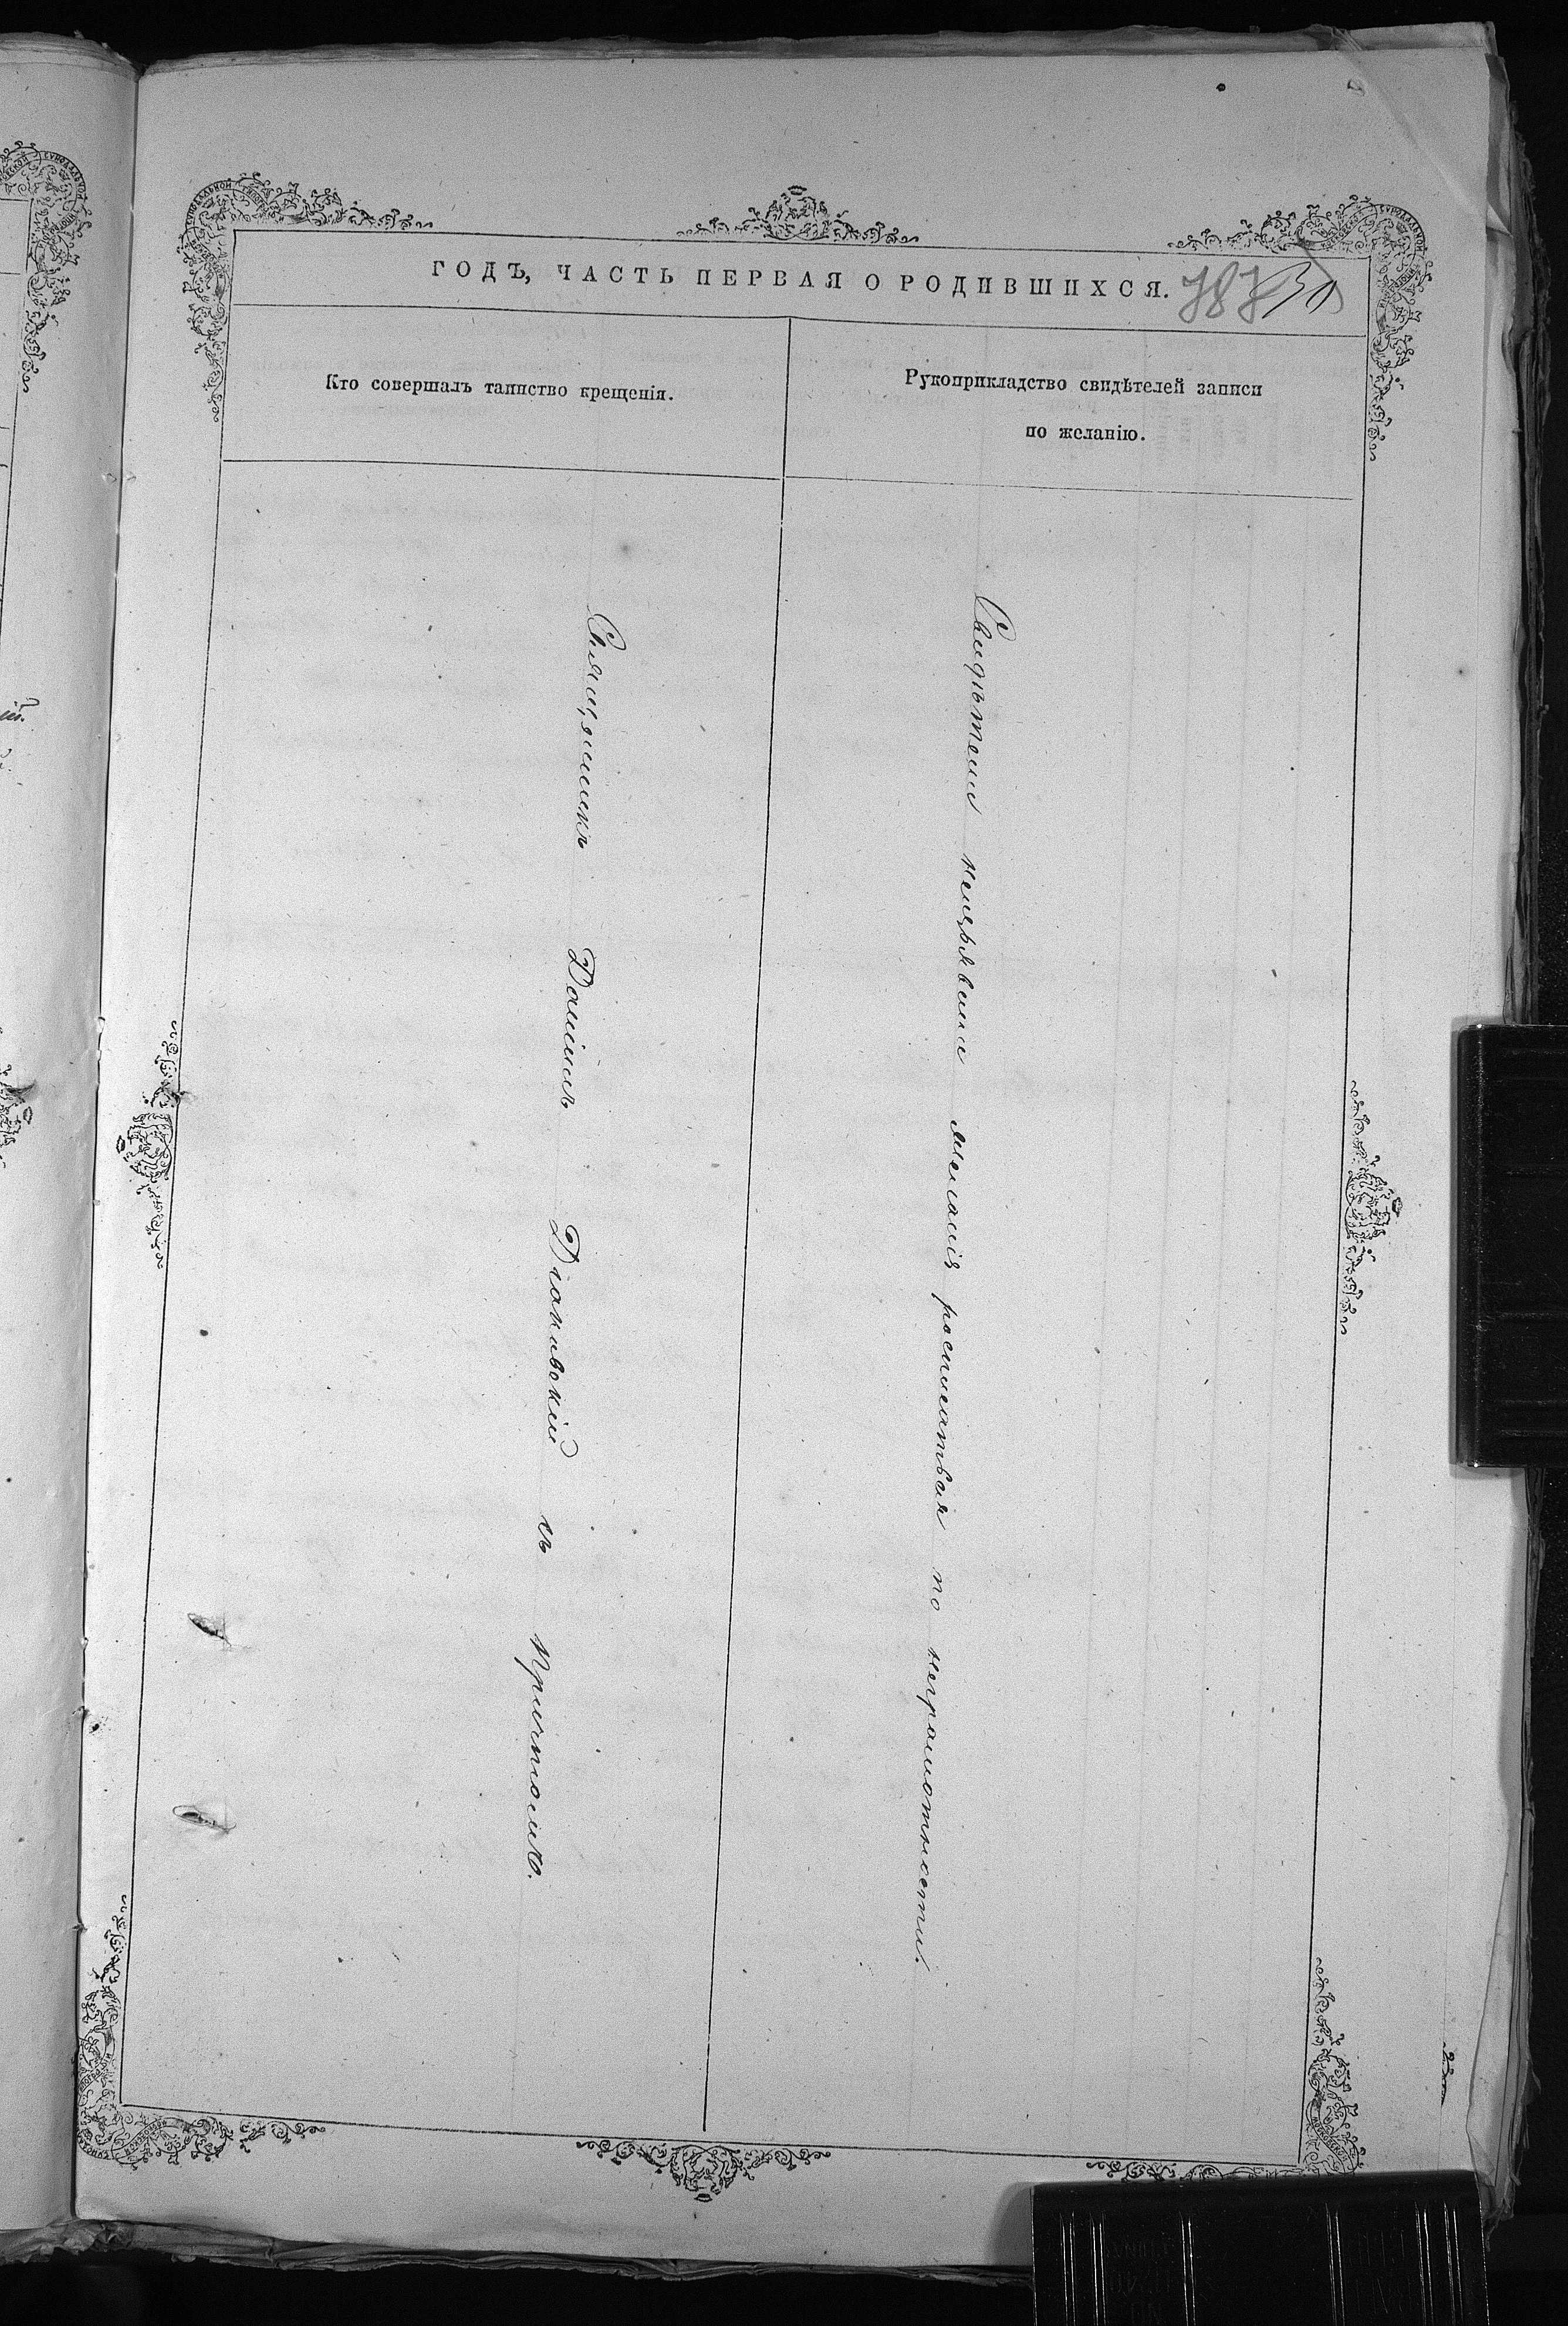 ГОДЪ, ЧАСТЬ ПЕРВАЯ О РОДИВШИХСЯ.
Кто совершалъ таинство крещенія.
Рукоприкладство свидѣтелей записи
по желанію.
Священникъ Даніилъ Діаковскій съ Причтомъ.
Свидѣтели неизъявили желанія росписатьсѧ по неграмотности.